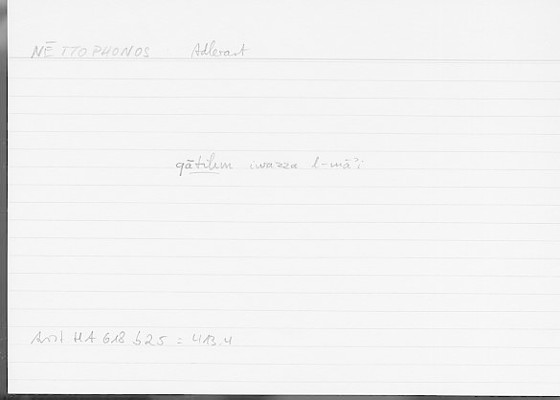 NĒTTOPHONOS Adlerart
qātilun iwazza l-māʾi
Arist HA 618 b25 = 413.4